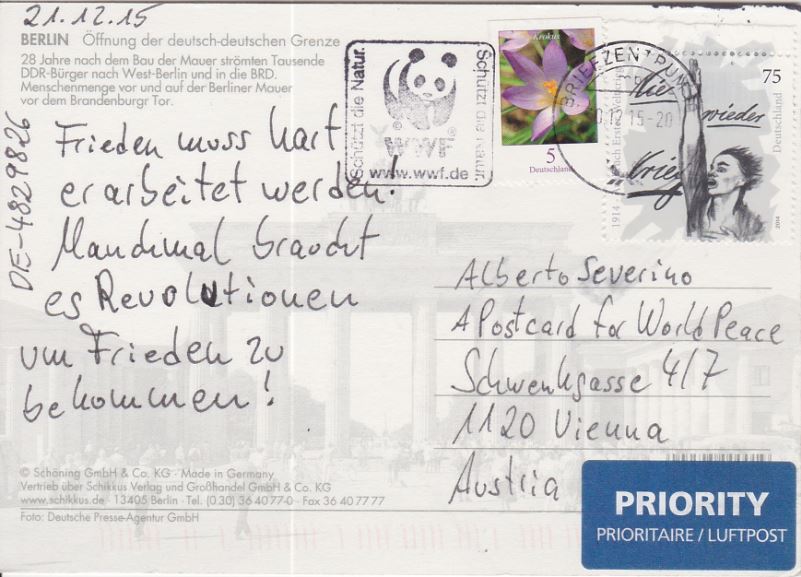 21.12.15
BERLIN Öffnung der deutsch-deutschen Grenze
28 Jahre nach dem Bau der Mauer strömten Tausende
DDR-Bürger nach West-Berlin und in die BRD.
Menschenmenge vor und auf der Berliner Mauer
vor dem Brandenburger Tor.
DE-4829826
Frieden muss hart
erarbeitet werden!
Manchmal braucht
es Revolutionen
um Frieden zu
bekommen!
Schützt die Natur.
WWF
Schützt die Natur.
www.wwf.de
Krokus
5
Deutschland
BRIEFZENTRUM
12.15-20
75
Deutschland
Nie
wieder
Krieg
1914
2014
Alberto Severino
A Postcard for World Peace
Schwenkgasse 4/7
1120 Vienna
Austria
© Schöning GmbH & Co. KG · Made in Germany
Vertrieb über Schikkus Verlag und Großhandel GmbH & Co. KG
www.schikkus.de · 13405 Berlin · Tel. (0 30) 36 40 77-0 · Fax 36 40 77 77
Foto: Deutsche Presse-Agentur GmbH
PRIORITY
PRIORITAIRE / LUFTPOST